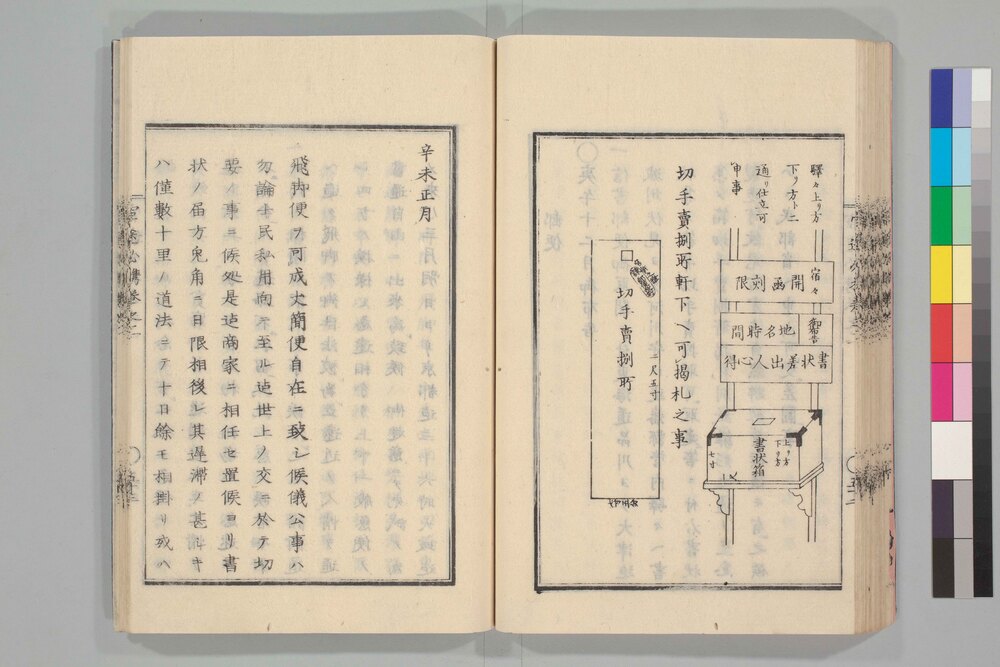 驛々上リ方
下リ方ト二
通リ仕立可
申事
宿々
開函刻限
地名時間
書状差出人心得
上リ方
下リ方
書状箱
七寸
切手賣捌所軒下ヘ可掲札之事
二尺五寸
切手賣捌所
辛未正月
飛脚便ヲ可成丈簡便自在ニ致シ候儀公事ハ
勿論士民私用向ニ至ル迠世上ノ交ニ於テ切
要ノ事ニ候処是迠商家ニ相任セ置候ヨリ書
状ノ届方兎角ニ日限相後レ其遅滞ノ甚シキ
ハ僅數十里ノ道法ニテ十日餘モ相掛リ或ハ